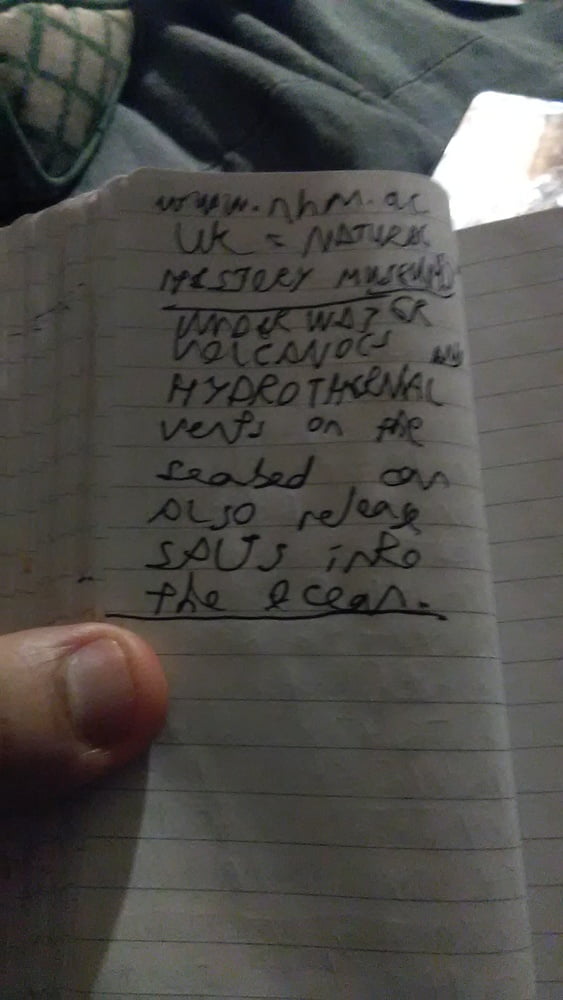 www.nhm.ac
UK = NATURAL
HISTORY MUSEUM
UNDER WATER
VOLCANOCS AND
HYDROTHERMAL
vents on the
seabed can
ALSO release
SALTS into
the ocean.